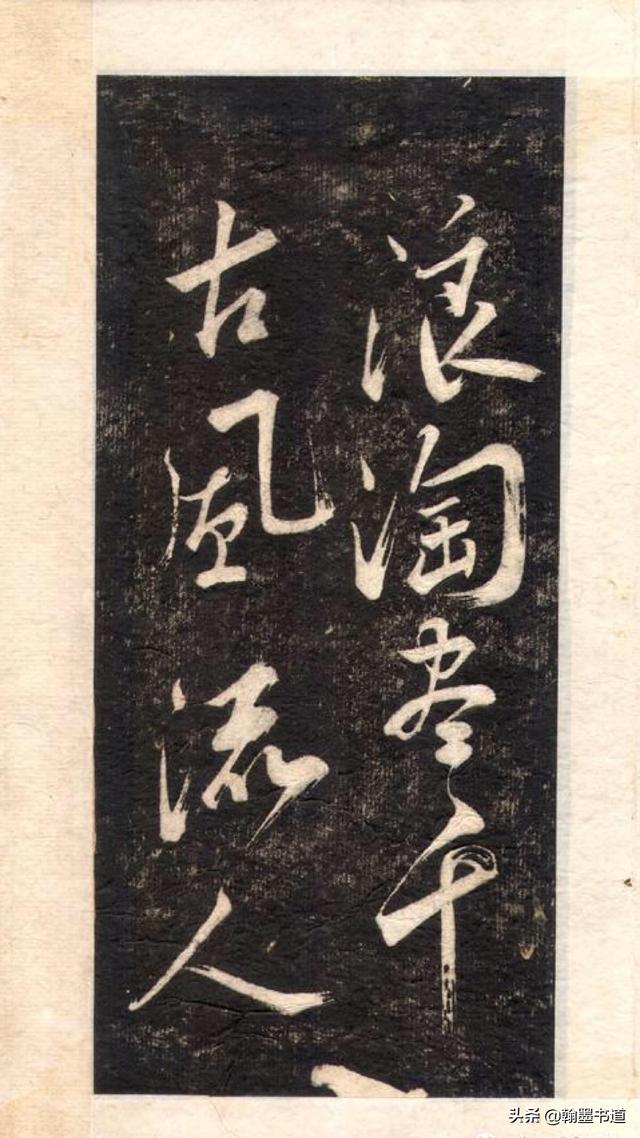 浪淘尽千
古風流人
头条 @翰墨书道